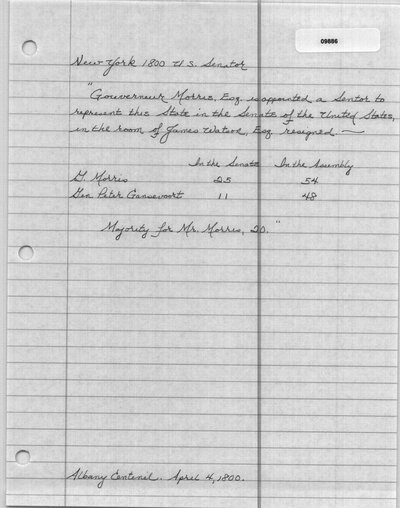 09886
New York 1800 U.S. Senator
"Gouverneur Morris, Esq. is appointed a Sentor to
represent this State in the Senate of the United States,
in the room of James Watson, Esq. resigned —
In the Senate In the Assembly
G. Morris 25 54
Gen. Peter Gansevoort 11 48
Majority for Mr. Morris, 20."
Albany Centinel. April 4, 1800.